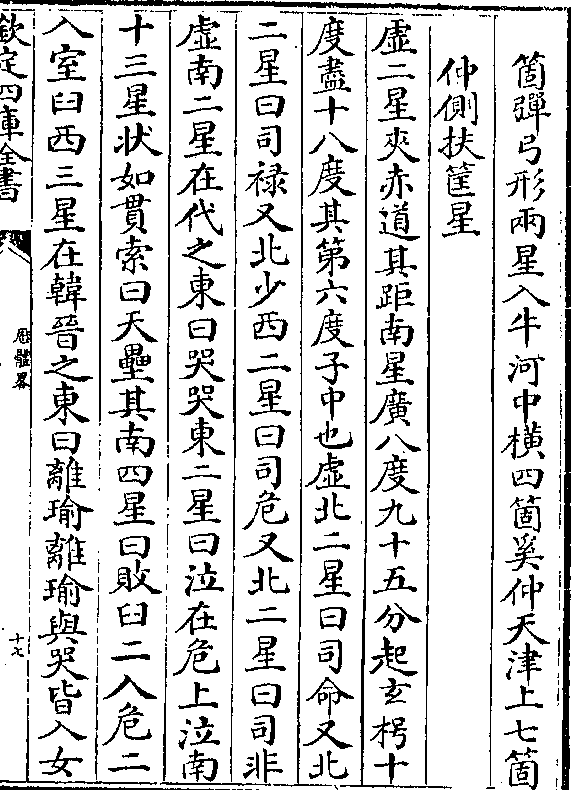 箇彈弓形兩星入牛河中横四箇奚仲天津上七箇
仲側扶筐星
虚二星夾赤道其距南星廣八度九十五分起玄枵十
度盡十八度其第六度子中也虚北二星曰司命又北
二星曰司禄又北少西二星曰司危又北二星曰司非
虚南二星在代之東曰哭哭東二星曰泣在危上泣南
十三星状如貫索曰天壘其南四星曰敗臼二入危二
入室臼西三星在韓晉之東曰離瑜離瑜與哭皆入女
欽定四庫全書
厯體畧
十七